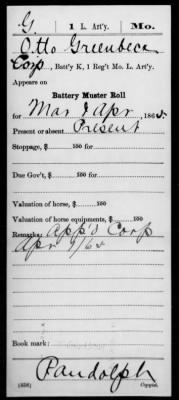 G. 1 L. Art'y. Mo.
Otto Greenbeca
Corp., Batt'y K, 1 Reg't Mo. L. Art'y.
Appears on
Battery Muster Roll
for Mar & Apr, 1865.
Present or absent Present
Stoppage, $ 100 for
Due Gov't, $ 100 for
Valuation of horse, $ 100
Valuation of horse equipments, $ 100
Remarks: App'd Corp
Apr 9/65
Book mark:
Randolph
(858) Copyist.